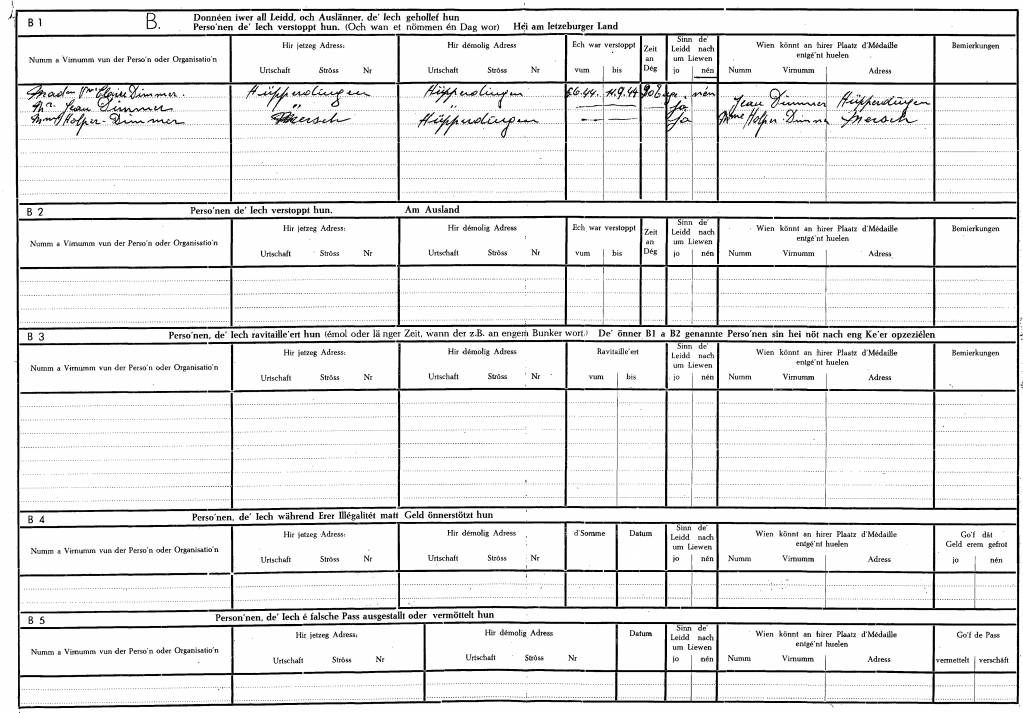 B 1 B. Donnéen iwer all Leidd, och Auslänner, de' Iech gehollef hun
Perso'nen de' Iech verstoppt hun. (Och wan et nömmen én Dag wor) Hei am letzeburger Land
Numm a Virnumm vun der Perso'n oder Organisatio'n
Hir jetzeg Adress:
Urtschaft Ströss Nr
Hir démolig Adress
Urtschaft Ströss Nr
Ech war verstoppt
vum bis
Zeit
an
Dég
Sinn de'
Leidd nach
um Liewen
jo nén
Wien könnt an hirer Plaatz d'Médaille
entgé'nt huelen
Numm Virnumm Adress
Bemierkungen
Claire Dimmer. Hüpperdingen Hüpperdingen 11.9.44 nén
Mr. Jean Dimmer " " ja Jean Dimmer Hüpperdingen
Mme Holper-Dimmer Mersch Hüpperdingen ja Mme Holper-Dimmer Mersch
B 2 Perso'nen de' Iech verstoppt hun. Am Ausland
Numm a Virnumm vun der Perso'n oder Organisatio'n
Hir jetzeg Adress:
Urtschaft Ströss Nr
Hir démolig Adress
Urtschaft Ströss Nr
Ech war verstoppt
vum bis
Zeit
an
Dég
Sinn de'
Leidd nach
um Liewen
jo nén
Wien könnt an hirer Plaatz d'Médaille
entgé'nt huelen
Numm Virnumm Adress
Bemierkungen
B 3 Perso'nen, de' Iech ravitaille'ert hun (émol oder länger Zeit, wann der z.B. an engem Bunker wort.) De' önner B1 a B2 genannte Perso'nen sin hei nöt nach eng Ke'er opzeziélen
Numm a Virnumm vun der Perso'n oder Organisatio'n
Hir jetzeg Adress:
Urtschaft Ströss Nr
Hir démolig Adress
Urtschaft Ströss Nr
Ravitaille'ert
vum bis
Sinn de'
Leidd nach
um Liewen
jo nén
Wien könnt an hirer Plaatz d'Médaille
entgé'nt huelen
Numm Virnumm Adress
Bemierkungen
B 4 Perso'nen, de' Iech während Erer Illégalitét matt Geld önnerstötzt hun
Numm a Virnumm vun der Perso'n oder Organisatio'n
Hir jetzeg Adress:
Urtschaft Ströss Nr
Hir démolig Adress
Urtschaft Ströss Nr
d'Somme
Datum
Sinn de'
Leidd nach
um Liewen
jo nén
Wien könnt an hirer Plaatz d'Médaille
entgé'nt huelen
Numm Virnumm Adress
Go'f dât
Geld erem gefrot
jo nén
B 5 Person'nen, de' Iech é falsche Pass ausgestallt oder vermöttelt hun
Numm a Virnumm vun der Perso'n oder Organisatio'n
Hir jetzeg Adress:
Urtschaft Ströss Nr
Hir démolig Adress
Urtschaft Ströss Nr
Datum
Sinn de'
Leidd nach
um Liewen
jo nén
Wien könnt an hirer Plaatz d'Médaille
entgé'nt huelen
Numm Virnumm Adress
Go'f de Pass
vermettelt verschâft